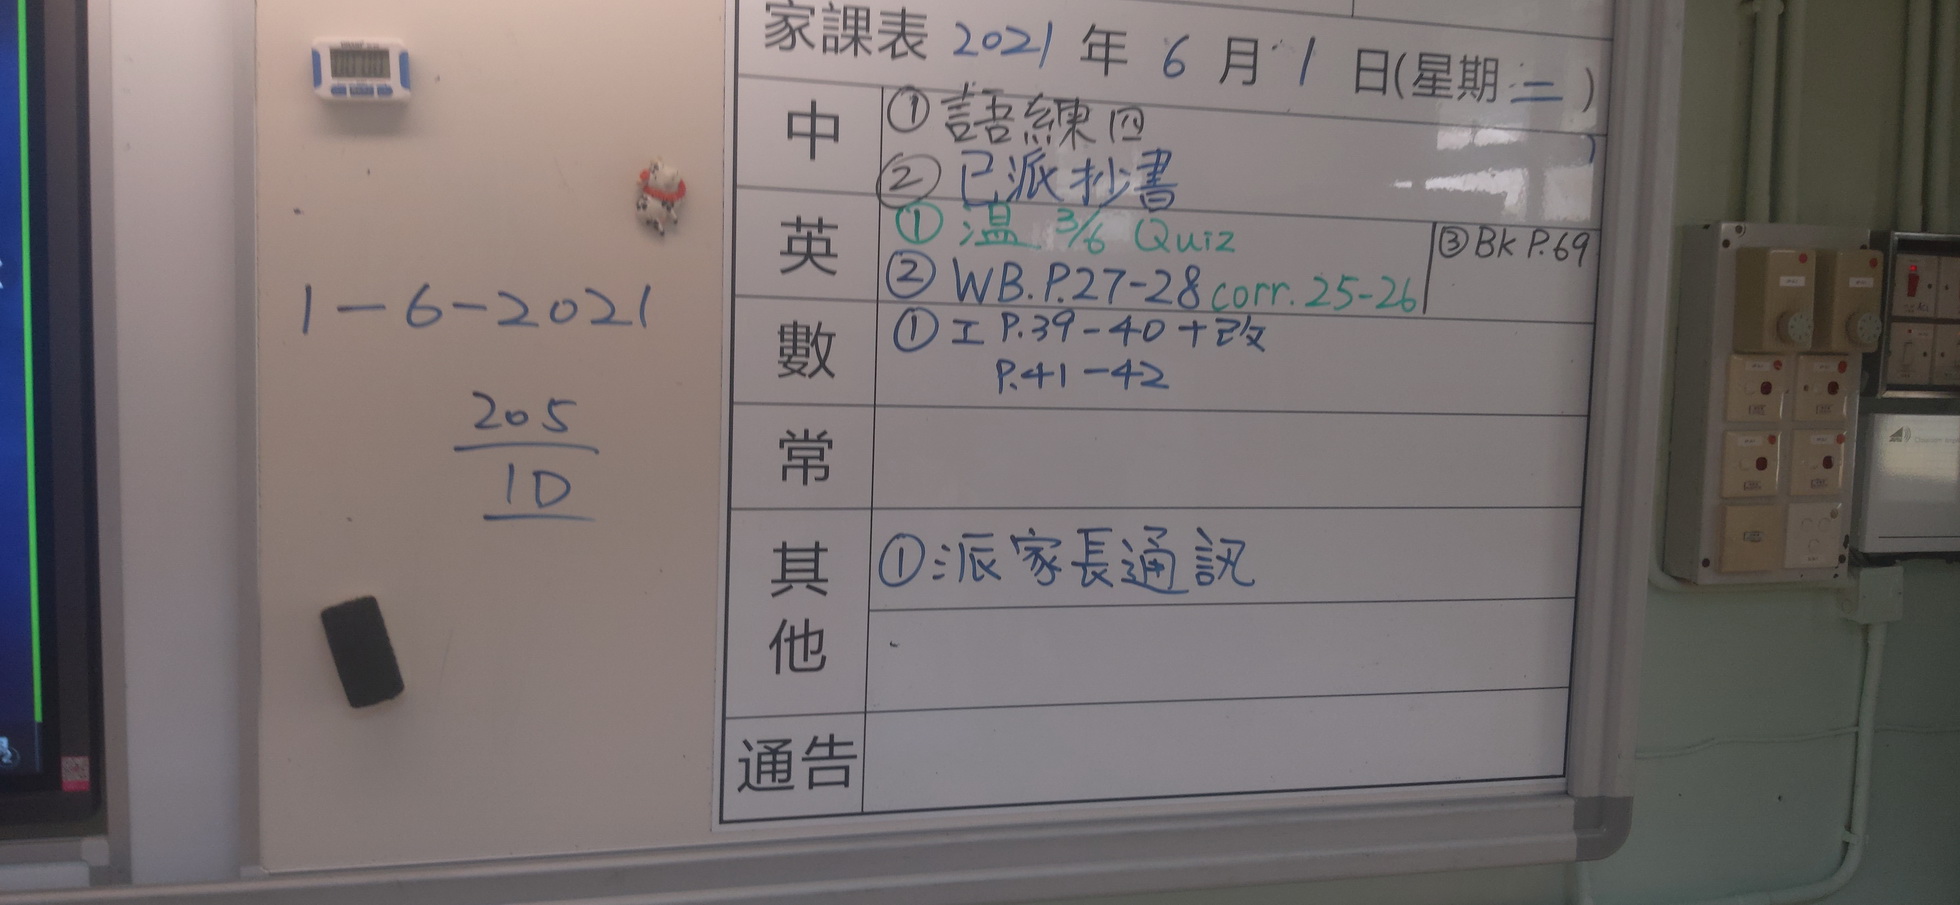 家課表 2021 年 6 月 1 日(星期二)
中
① 語練四
② 已派抄書
英
① 溫 3/6 Quiz
② WB.P.27-28 corr. 25-26
③ BK P.69
數
① 工 P.39-40 + 改
P.41-42
常
其他
① 派家長通訊
通告
1-6-2021
205
1D